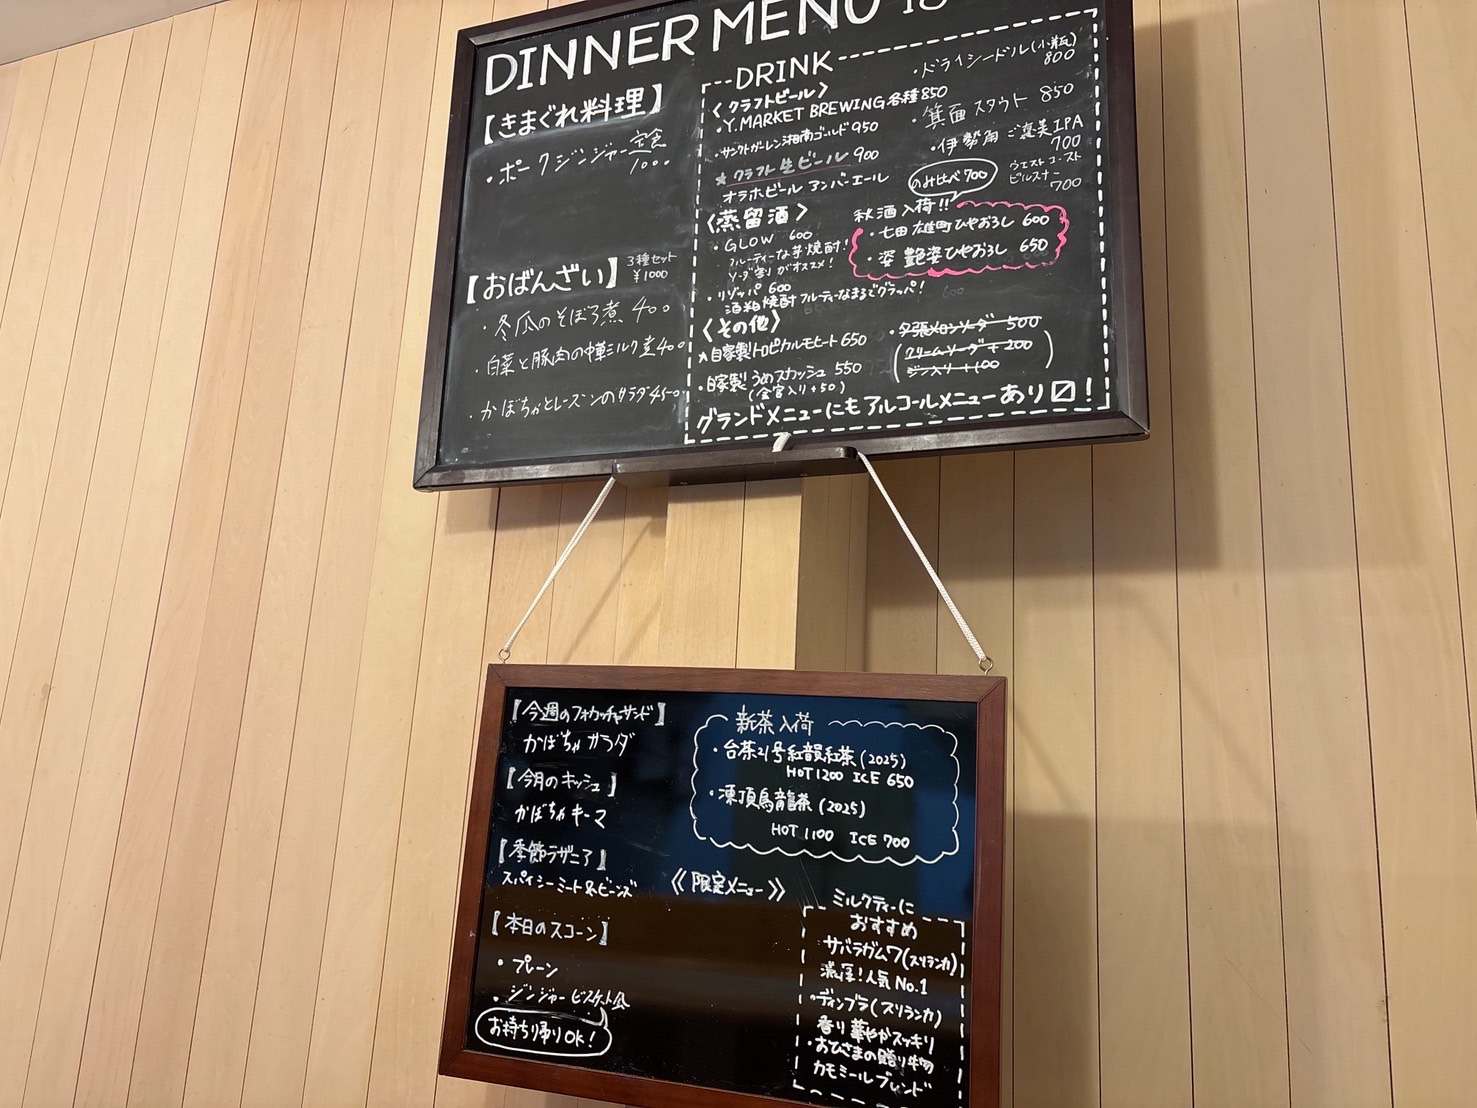 DINNER MENU
【きまぐれ料理】
・ポークジンジャー定食
1000
【おばんざい】
3種セット
¥1000
・冬瓜のそぼろ煮 400
・白菜と豚肉の中華ミルク煮 400
・かぼちゃとレーズンのサラダ 450
DRINK
〈クラフトビール〉
・Y.MARKET BREWING各種 850
・サンクトガーレン湘南ゴールド 950
★クラフト生ビール 900
オラホビール アンバーエール
・ドライシードル(小瓶)
800
・箕面スタウト 850
・伊勢角 ご褒美IPA
700
ウエストコースト
ピルスナー
700
〈蒸留酒〉
・GLOW 600
フルーティーな芋焼酎!
ソーダ割りがオススメ!
・リゾッパ 600
酒粕焼酎 フルーティーなまるでグラッパ!
のみ比べ 700
秋酒入荷!!
・七田 雄町ひやおろし 600
・姿 艶姿ひやおろし 650
〈その他〉
★自家製トロピカルモヒート 650
・自家製うめスカッシュ 550
・夕張メロンソーダ 500
(クリームソーダ+200
ジン入り+100)
グランドメニューにもアルコールメニューあり〼!
【今週のフォカッチャサンド】
かぼちゃサラダ
【今月のキッシュ】
かぼちゃキーマ
【季節ラザニア】
スパイシーミート&ビーンズ
【本日のスコーン】
・プレーン
・ジンジャービスケット
お持ち帰りOK!
新茶入荷
・台茶21号紅韻紅茶(2025)
HOT 1200 ICE 650
・凍頂烏龍茶(2025)
HOT 1100 ICE 700
《限定メニュー》
ミルクティーに
おすすめ
サバラガムワ(スリランカ)
濃厚!人気No.1
・ディンブラ(スリランカ)
香り華やかスッキリ
・おひさまの贈り物
カモミールブレンド